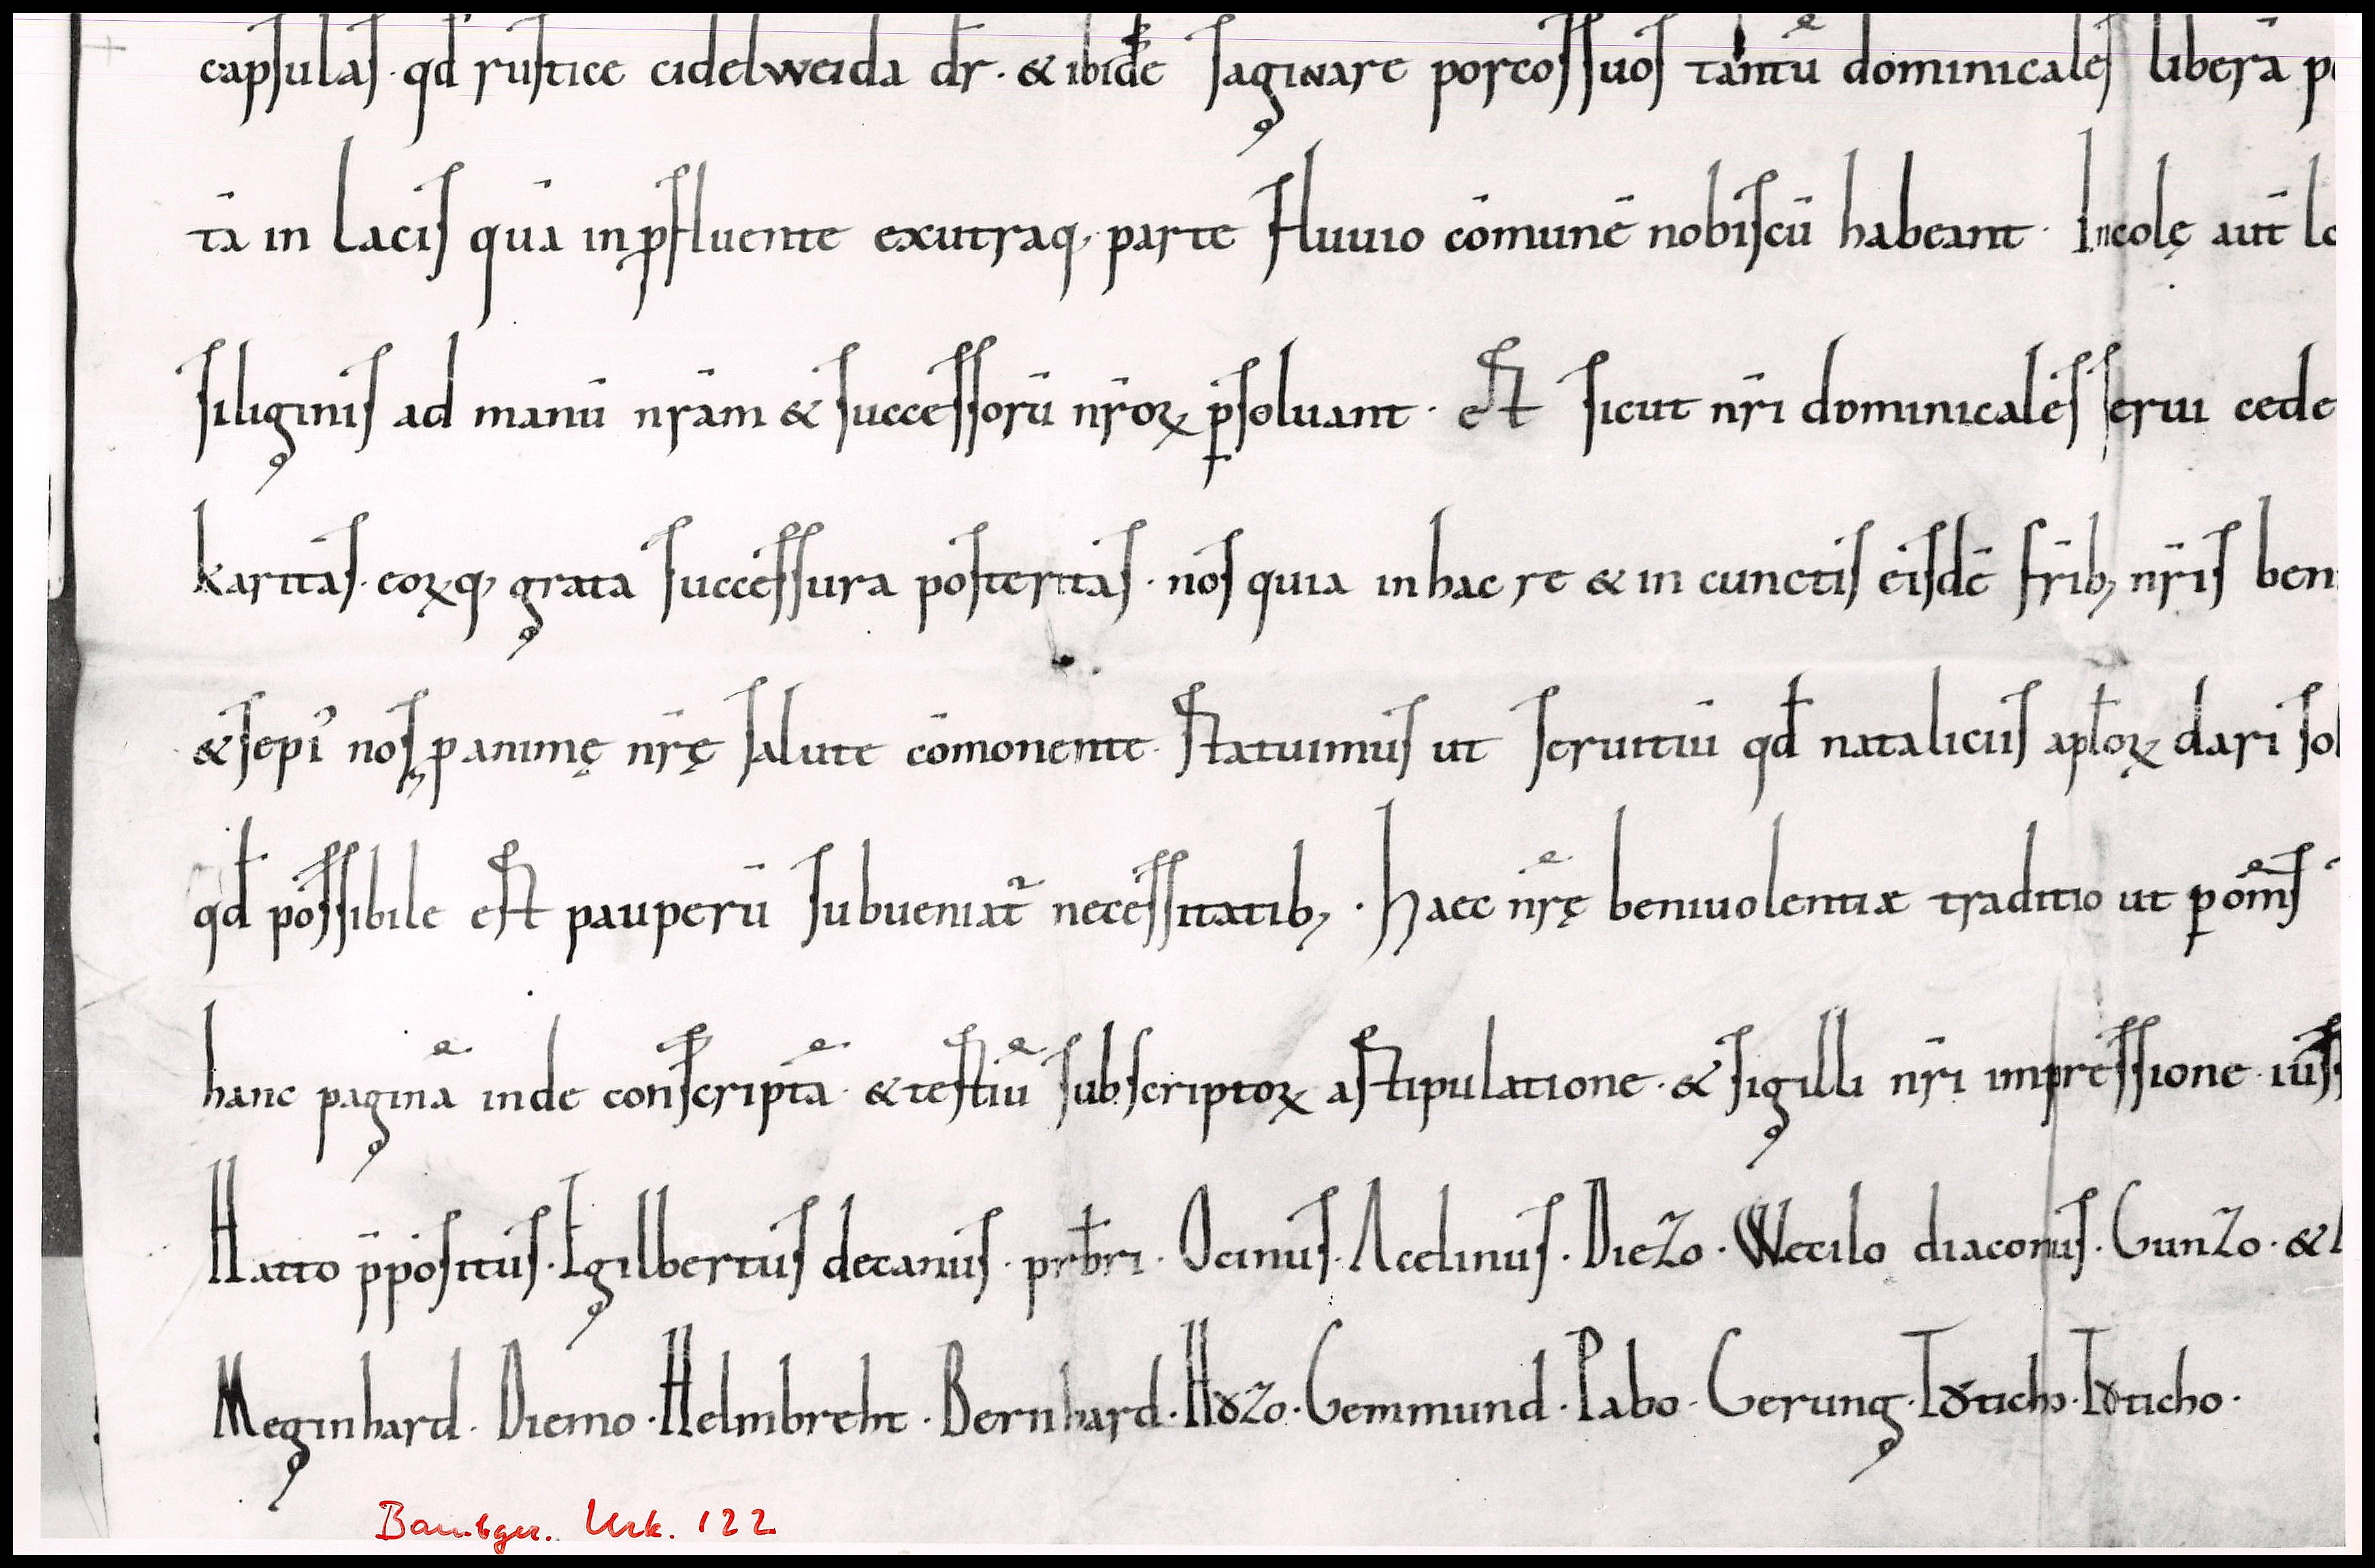 capsulas · qđ rustice cidelweida dr̄ · & ibidē saginare porcos suos tantū dominicales liberā
tā in lacis quā in ꝓfluente ex utraq; parte fluuio cōmunē nobiscū habeant · Incolę aut̄
siliginis ad manū nr̄am & successorū nr̄oꝝ ꝑsoluant · est sicut nr̄i dominicales serui cede
karitas · eoꝝq; grata successura posteritas · nos quia in hac re & in cunctis eisdē fr̄ib; nr̄is ben
& sepi᾽ nos ꝓ animę nr̄ę salute cōmonente · statuimus ut seruitiū qđ nataliciis apl̄oꝝ dari sol
qđ possibile est pauperū subueniat᷑ necessitatib; · Haec nr̄ę beniuolentiæ traditio ut ꝑ om̄s
hanc paginā inde conscriptā · & testiū subscriptoꝝ astipulatione · & sigilli nr̄i impressione iuss
Hatto p̄positus · Egilbertus decanus · prb̄ri · Ocinus · Acelinus · Diezo · Wecilo diaconus · Gunzo · &
Meginhard · Diemo · Helmbreht · Bernhard · Hȣzo · Gemmund · Pabo · Gerung · Tȣticho · Tȣticho ·
Bamberger. Urk. 122